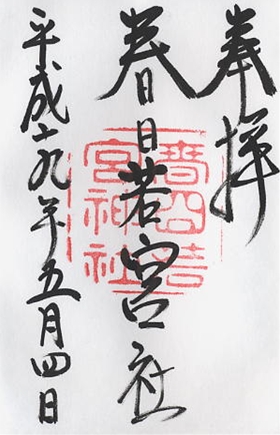 奉拝
春日若宮社
平成十九年五月四日
春日若
宮神社